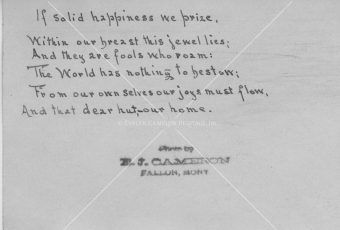 If solid happiness we prize,
Within our breast this jewel lies;
And they are fools who roam:
The World has nothing to bestow;
From our own selves our joys must flow,
And that dear hut,—our home.
© EVELYN CAMERON HERITAGE, INC.
Photo by
E. J. CAMERON
FALLON, MONT